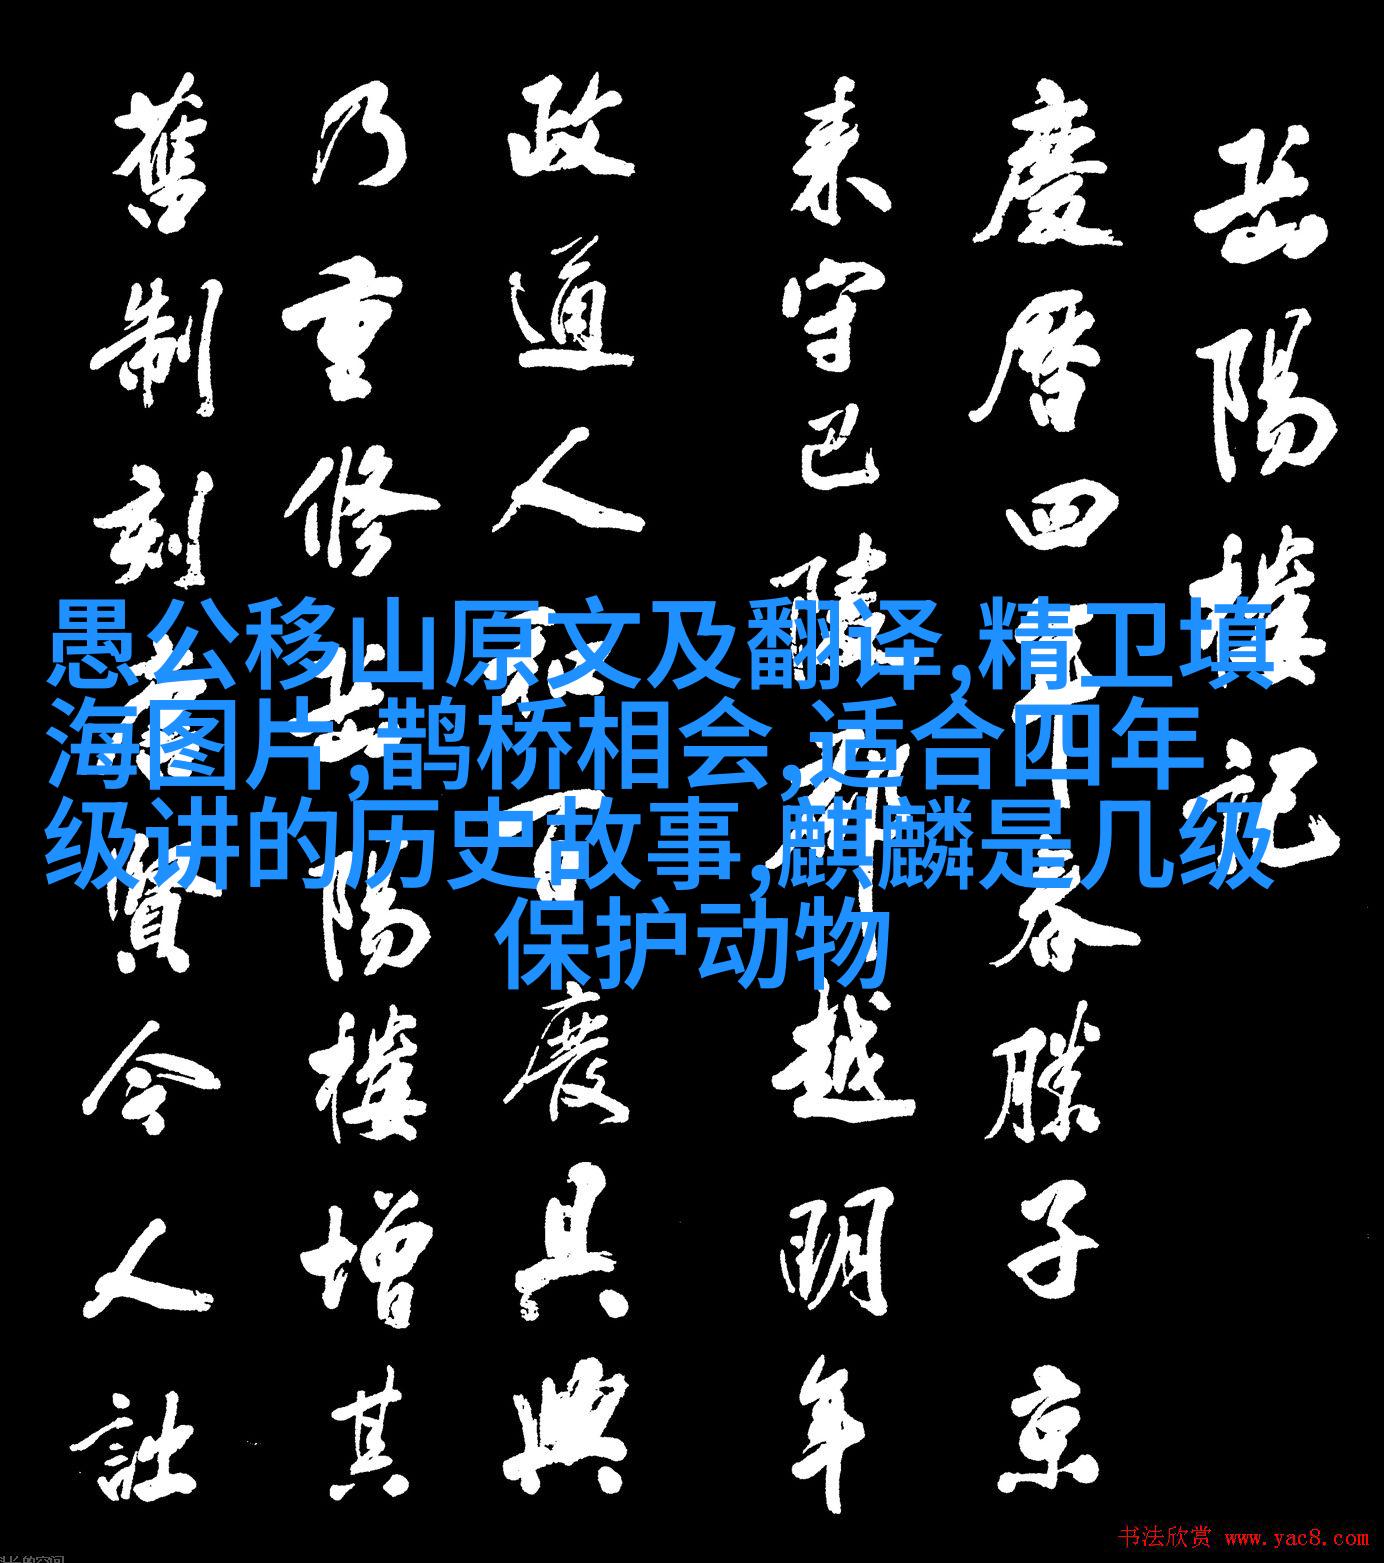 岳陽樓記
慶曆四年春滕子京
来守巴陵郡越明年
政通人和百廢具興
乃重修岳陽樓增其
舊制刻唐賢今人詩
愚公移山原文及翻译,精卫填
海图片,鹊桥相会,适合四年
级讲的历史故事,麒麟是几级
保护动物
书法欣赏 www.yac8.com